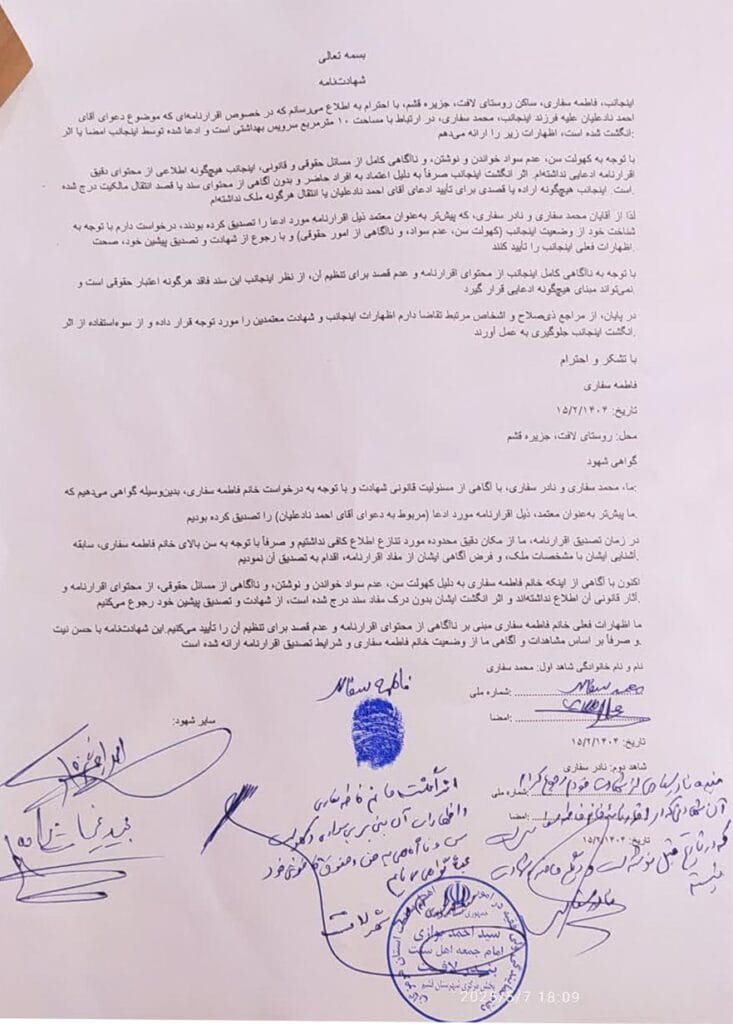 بسمه تعالی
شهادت‌نامه
اینجانب، فاطمه سفاری، ساکن روستای لافت، جزیره قشم، با احترام به اطلاع می‌رسانم که در خصوص اقرارنامه‌ای که موضوع دعوای آقای
احمد نادعلیان علیه فرزند اینجانب، محمد سفاری، در ارتباط با مساحت ۱۰ مترمربع سرویس بهداشتی است و ادعا شده توسط اینجانب امضا یا اثر
:انگشت شده است، اظهارات زیر را ارائه می‌دهم
با توجه به کهولت سن، عدم سواد خواندن و نوشتن، و ناآگاهی کامل از مسائل حقوقی و قانونی، اینجانب هیچ‌گونه اطلاعی از محتوای دقیق
اقرارنامه ادعایی نداشته‌ام. اثر انگشت اینجانب صرفاً به دلیل اعتماد به افراد حاضر و بدون آگاهی از محتوای سند یا قصد انتقال مالکیت درج شده
.است. اینجانب هیچ‌گونه اراده یا قصدی برای تأیید ادعای آقای احمد نادعلیان یا انتقال هرگونه ملک نداشته‌ام
لذا از آقایان محمد سفاری و نادر سفاری، که پیش‌تر به‌عنوان معتمد ذیل اقرارنامه مورد ادعا را تصدیق کرده بودند، درخواست دارم با توجه به
شناخت خود از وضعیت اینجانب (کهولت سن، عدم سواد، و ناآگاهی از امور حقوقی) و با رجوع از شهادت و تصدیق پیشین خود، صحت
.اظهارات فعلی اینجانب را تأیید کنند
با توجه به ناآگاهی کامل اینجانب از محتوای اقرارنامه و عدم قصد برای تنظیم آن، از نظر اینجانب این سند فاقد هرگونه اعتبار حقوقی است و
.نمی‌تواند مبنای هیچ‌گونه ادعایی قرار گیرد
در پایان، از مراجع ذی‌صلاح و اشخاص مرتبط تقاضا دارم اظهارات اینجانب و شهادت معتمدین را مورد توجه قرار داده و از سوءاستفاده از اثر
.انگشت اینجانب جلوگیری به عمل آورند
با تشکر و احترام
فاطمه سفاری
تاریخ: ۱۵/۲/۱۴۰۴
محل: روستای لافت، جزیره قشم
گواهی شهود
:ما، محمد سفاری و نادر سفاری، با آگاهی از مسئولیت قانونی شهادت و با توجه به درخواست خانم فاطمه سفاری، بدین‌وسیله گواهی می‌دهیم که
.ما پیش‌تر به‌عنوان معتمد، ذیل اقرارنامه مورد ادعا (مربوط به دعوای آقای احمد نادعلیان) را تصدیق کرده بودیم
در زمان تصدیق اقرارنامه، ما از مکان دقیق محدوده مورد تنازع اطلاع کافی نداشتیم و صرفاً با توجه به سن بالای خانم فاطمه سفاری، سابقه
.آشنایی ایشان با مشخصات ملک، و فرض آگاهی ایشان از مفاد اقرارنامه، اقدام به تصدیق آن نمودیم
اکنون با آگاهی از اینکه خانم فاطمه سفاری به دلیل کهولت سن، عدم سواد خواندن و نوشتن، و ناآگاهی از مسائل حقوقی، از محتوای اقرارنامه و
.آثار قانونی آن اطلاع نداشته‌اند و اثر انگشت ایشان بدون درک مفاد سند درج شده است، از شهادت و تصدیق پیشین خود رجوع می‌کنیم
ما اظهارات فعلی خانم فاطمه سفاری مبنی بر ناآگاهی از محتوای اقرارنامه و عدم قصد برای تنظیم آن را تأیید می‌کنیم.این شهادت‌نامه با حسن نیت
.و صرفاً بر اساس مشاهدات و آگاهی ما از وضعیت خانم فاطمه سفاری و شرایط تصدیق اقرارنامه ارائه شده است
نام و نام خانوادگی شاهد اول: محمد سفاری
فاطمه سفاری
:شماره ملی
محمد سفاری
:امضا
سایر شهود:
تاریخ: ۱۵/۲/۱۴۰۴
شاهد دوم: نادر سفاری
:شماره ملی
نادر سفاری از شهادت خودم رجوع کردم
:امضا
تاریخ: ۱۵/۲/۱۴۰۴
اثر انگشت خانم فاطمه سفاری
و اظهارات آن مبنی بر بی سوادی و کهولت
سن و ناآگاهی
گواهی می نمایم
سید احمد
امام جمعه اهل سنت
بندر لافت
بخش مرکزی شهرستان قشم
2025/5/7 18:09